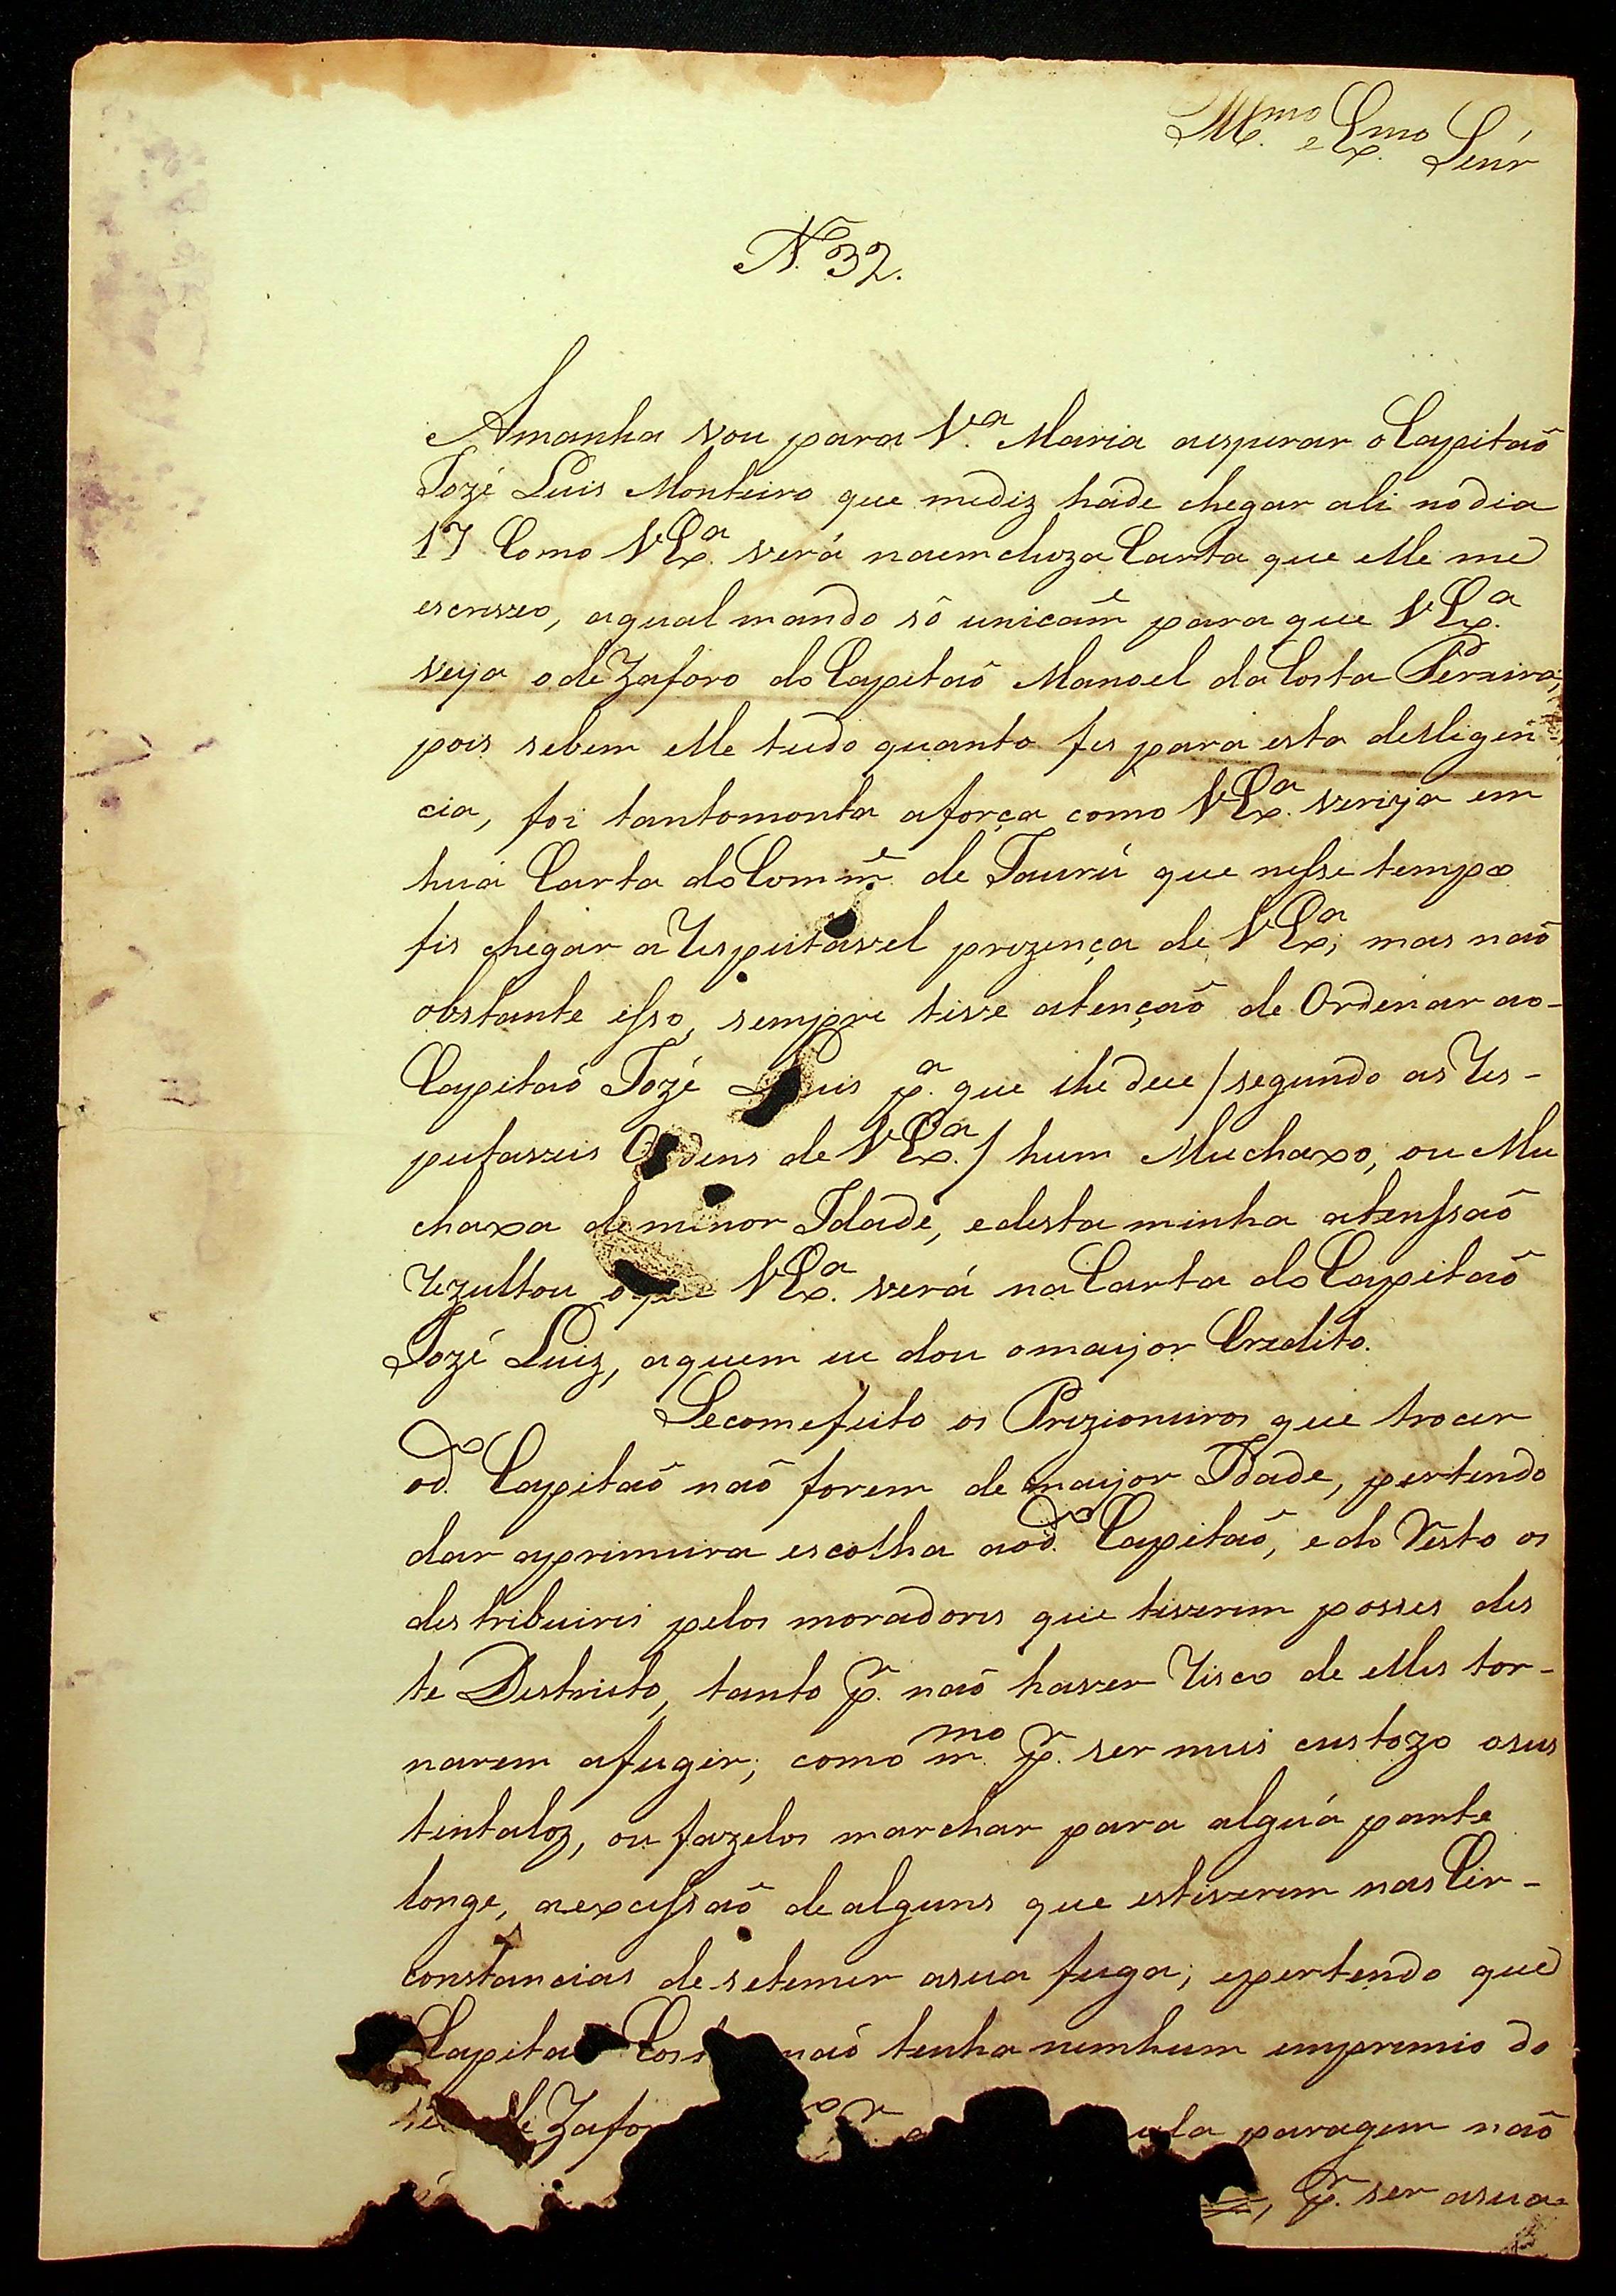 Ill.mo e Ex.mo Senr
N.32.
Amanha vou para V.a Maria aesperar oCapitaõ
Jozé Luis Monteiro que mediz hade chegar ali nodia
17 Como VEx.a verá naemcluzaCarta que elle me
escreveo, aqual mando só unicam.e para que VEx.a
veja odeZaforo doCapitaõ Manoel daCosta Pereira,
pois sebem elle tudo quanto fes para esta delligen-
cia, foi tantomonta aforça como VEx.a verija em
huã Carta doCom.m.e de Taurú que nesse tempo
fis chegar aRespeitavel prezença de VEx.a; mas naõ
obstante isso, sempre tive atençaõ de Ordenar ao-
Capitaõ Jozé Luis p.a que lhe dece / segundo asRes-
peitaveis Ordens de VEx.a / hum Muchaxo, ou Mu
chaxa deminor Idade, edesta minha atensaõ
Rezultou oque VEx.a verá naCarta doCapitaõ
Jozé Luiz, aquem eu dou omaijor Credito.
Secomefeito os Prezioneiros que trocer
od.o Capitaõ naõ forem de maijor Idade, pertendo
dar aprimeira escolha aod.o Capitaõ, edo Resto os
destribuirei pelos moradores que tiverem posses des
te Destricto, tanto p.r naõ haver Risco de elles tor-
narem afugir; como m.mo p.r ser mais custozo osus
tentaloz, ou fazelos marchar para algũa parte
longe, aexcessaõ dealguns que estiverem nasCir-
constancias desetemer asua fuga; epertendo que
Capitaõ Cost naõ tenha nemhum empremio do
deZafor ela paragem naõ
, p.r ser asua